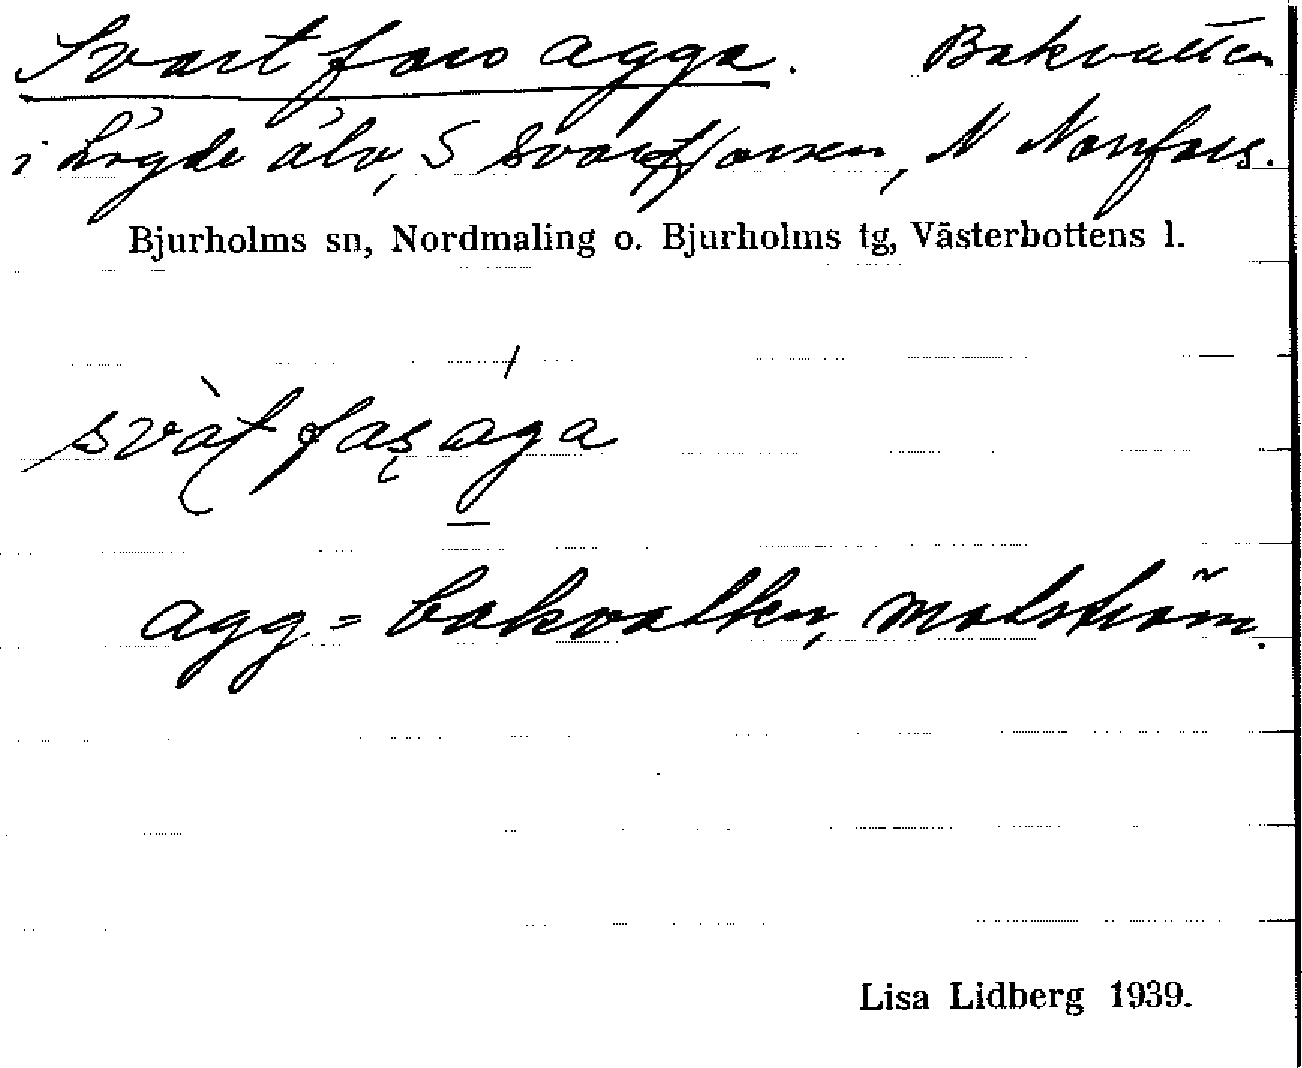 Svartforsagga. Bakvatten
i Lögde älv, S Svartforsen, N Norrfors.
Bjurholms sn, Nordmaling o. Bjurholms tg, Västerbottens l.
agg = bakvatten, malström.
Lisa Lidberg 1939.